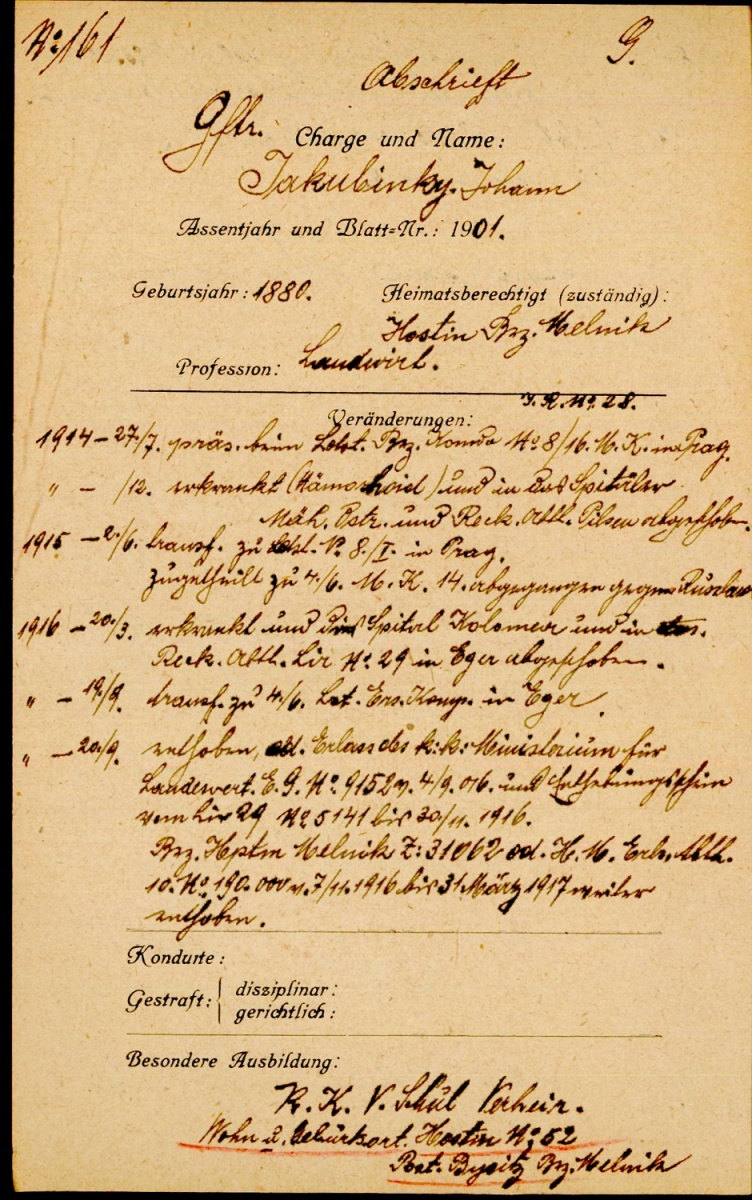 No 161
G.
Abschrieft
Gftr. Charge und Name:
Jakubinky Johann
Assentjahr und Blatt-Nr.: 1901.
Geburtsjahr: 1880. Heimatsberechtigt (zuständig):
Hostin Bez. Melnik
Profession: Landwirt.
I. R. No. 28.
Veränderungen:
1914 – 27./7. präs. beim Ldst. Bez. Komdo No 8/16. M. K. in Prag.
" – /12. erkrankt (Hämorhoid) und in das Spitäler
Mäh. Ostr. und Reck. Abtl. Pilsen abgeschoben.
1915 – 2./6. transf. zu Ldst. No 8./I. in Prag.
zugetheilt zu 4./6. M. K. 14. abgegangen gegen
1916 – 20./3. erkrankt und Spital Kolomea und in
Reck. Abtl. Lir No. 29 in Eger abgeschoben.
" – 19./9. transf. zu 4./6. Ers. Komp. in Eger.
" – 20./9. enthoben, Erlass des k: k: Ministerium für
Landesvert. No. 9152 v. 4/9. 916. und Enthebungsschein
vom Lir 29 No 5141 bis 30/11. 1916.
Bez. Hptm Melnik Z: 31062 Abtl.
10. No. 190.000 v. 7/11. 1916 bis 31 März 1917 weiter
enthoben.
Kondurte:
Gestraft: disziplinar:
gerichtlich:
Besondere Ausbildung:
R. K. V. Schul Verheir.
Wohn u. Geburtsort. Hostin No 52
Post. Bysitz Bez. Melnik